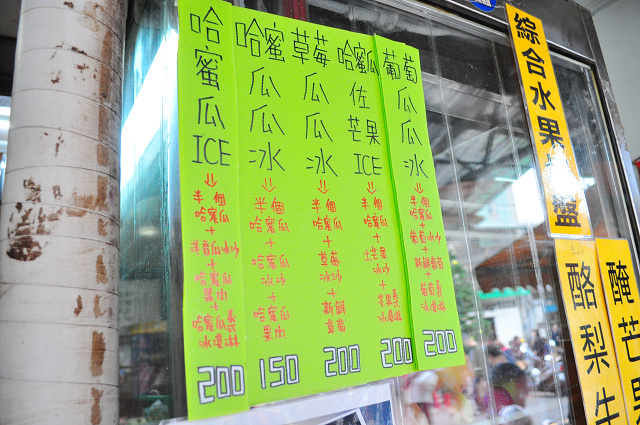 哈蜜瓜ICE
半個
哈蜜瓜
+
半哈瓜冰沙
+
哈蜜瓜
果肉
+
哈蜜瓜義
冰淇淋
200
哈蜜瓜瓜冰
半個
哈蜜瓜
+
哈蜜瓜
冰沙
+
哈蜜瓜
果肉
150
草莓瓜瓜冰
半個
哈蜜瓜
+
草莓
冰沙
+
新鮮
草莓
200
哈蜜瓜佐芒果ICE
半個
哈蜜瓜
+
土芒果
冰沙
+
芒果義
冰淇淋
200
葡萄瓜瓜冰
半個
哈蜜瓜
+
葡萄冰沙
+
新鮮葡萄
+
葡萄義
冰淇淋
200
綜合水果盤
酪梨牛
醃芒果